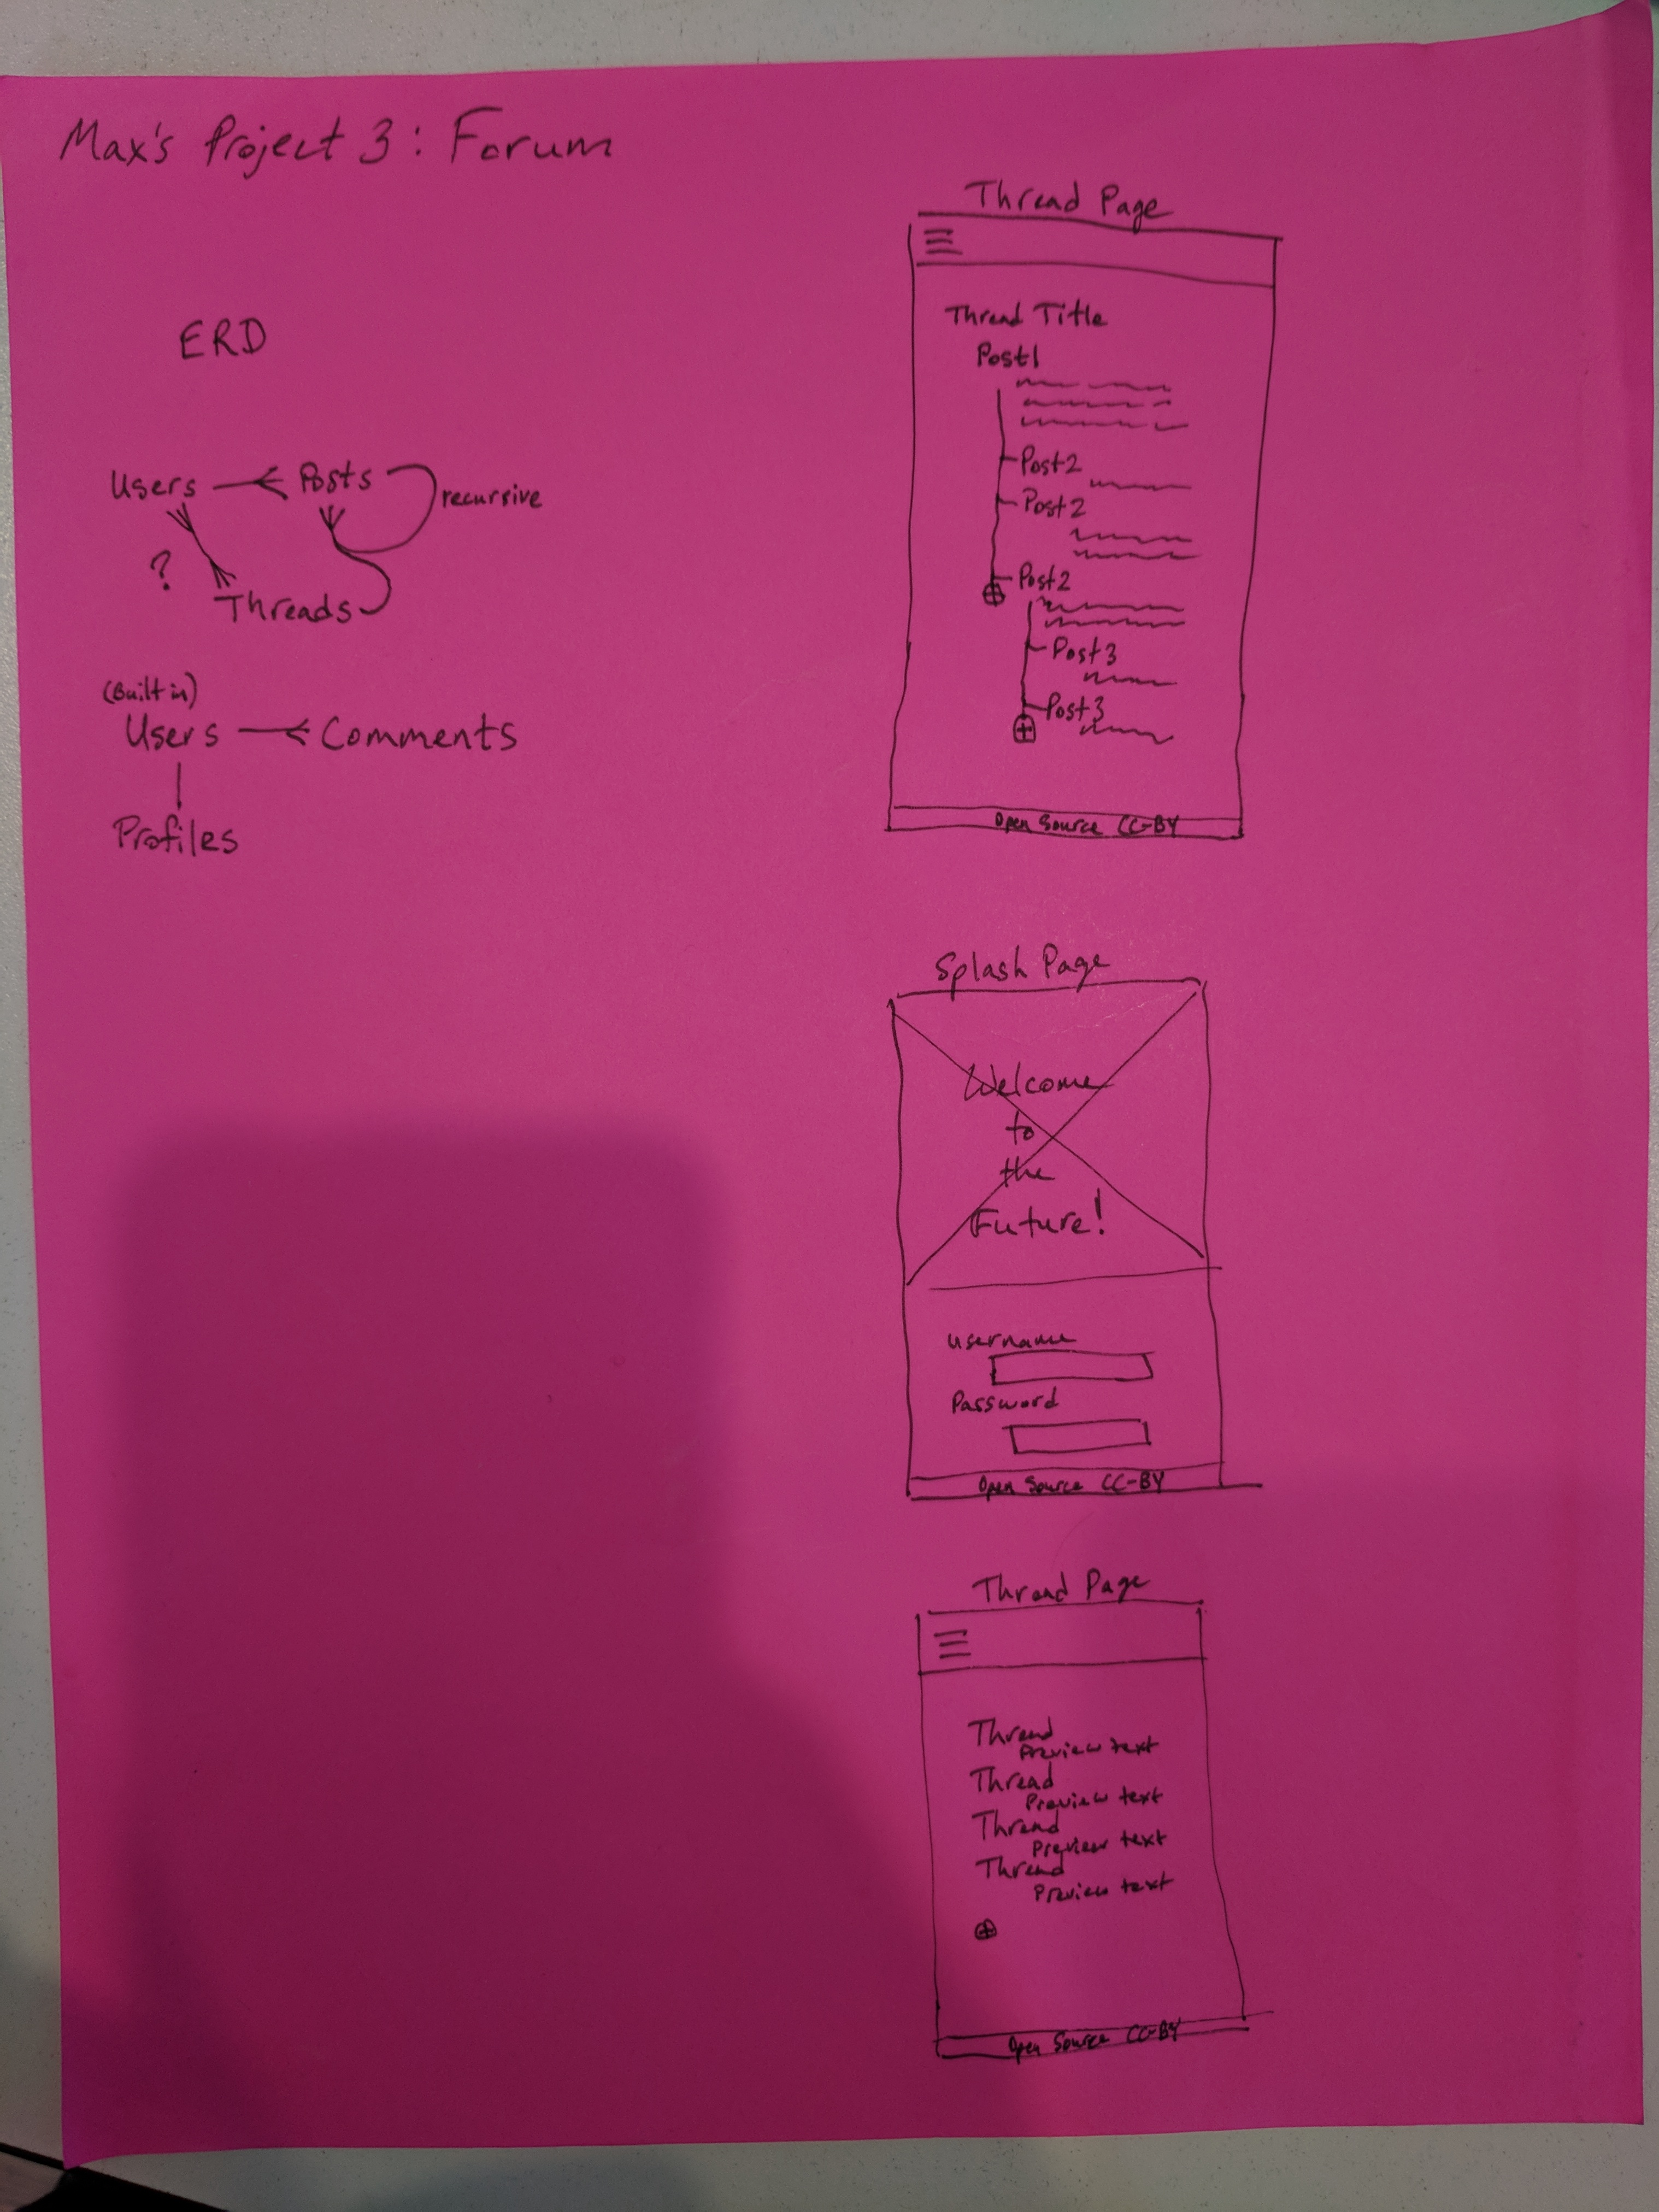 Max's Project 3: Forum
ERD
Users
Posts
recursive
?
Threads
(Built in)
Users
Comments
Profiles
Thread Page
Thread Title
Post1
Post2
Post2
Post2
Post3
Post3
Open Source CC-BY
Splash Page
Welcome
to
the
Future!
username
Password
Open Source CC-BY
Thread Page
Thread
Preview text
Thread
Preview text
Thread
Preview text
Thread
Preview text
Open Source CC-BY